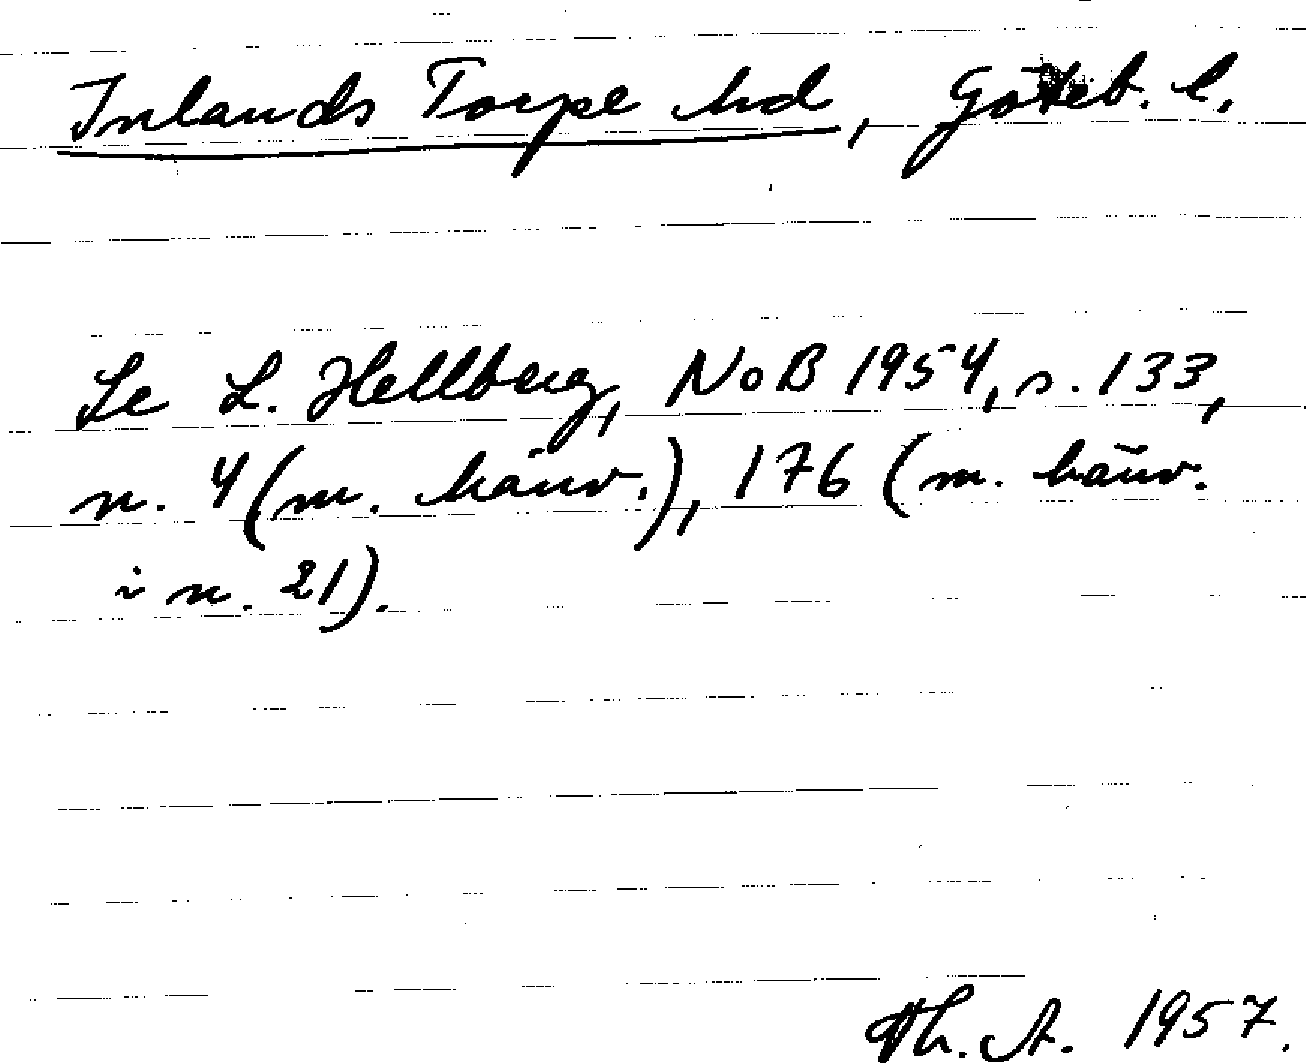 Inlands Torpe hd, Göteb. l.
Se L. Hellberg, NoB 1954, s. 133,
n. 4 (m. hänv.), 176 (m. hänv.
i n. 21).
Th. A. 1957.